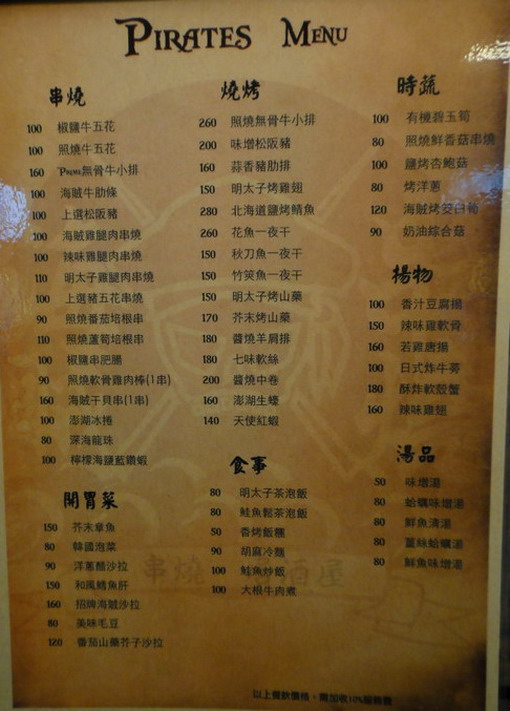 PIRATES MENU
串燒
100 椒鹽牛五花
100 照燒牛五花
160 PRIME無骨牛小排
100 海賊牛肋條
100 上選松阪豬
100 海賊雞腿肉串燒
100 辣味雞腿肉串燒
110 明太子雞腿肉串燒
100 上選豬五花串燒
90 照燒番茄培根串
110 照燒蘆筍培根串
100 椒鹽串肥腸
90 照燒軟骨雞肉棒(1串)
160 海賊干貝串(1串)
100 澎湖冰捲
80 深海龍珠
100 檸檬海鹽藍鑽蝦
開胃菜
150 芥末章魚
80 韓國泡菜
90 洋蔥醋沙拉
150 和風鱈魚肝
160 招牌海賊沙拉
80 美味毛豆
120 番茄山藥芥子沙拉
燒烤
260 照燒無骨牛小排
200 味增松阪豬
160 蒜香豬肋排
150 明太子烤雞翅
280 北海道鹽烤鯖魚
260 花魚一夜干
150 秋刀魚一夜干
150 竹筴魚一夜干
150 明太子烤山藥
170 芥末烤山藥
180 醬燒羊肩排
180 七味軟絲
200 醬燒中卷
160 澎湖生蠔
140 天使紅蝦
食事
80 明太子茶泡飯
80 鮭魚鬆茶泡飯
50 香烤飯糰
90 胡麻冷麵
100 鮭魚炒飯
100 大根牛肉煮
時蔬
100 有機碧玉筍
80 照燒鮮香菇串燒
100 鹽烤杏鮑菇
80 烤洋蔥
120 海賊烤茭白筍
90 奶油綜合菇
揚物
100 香汁豆腐揚
150 辣味雞軟骨
160 若雞唐揚
100 日式炸牛蒡
180 酥炸軟殼蟹
160 辣味雞翅
湯品
50 味增湯
80 蛤蠣味增湯
80 鮮魚清湯
80 薑絲蛤蠣湯
80 鮮魚味增湯
串燒 酒屋
以上餐飲價格，需加收10%服務費